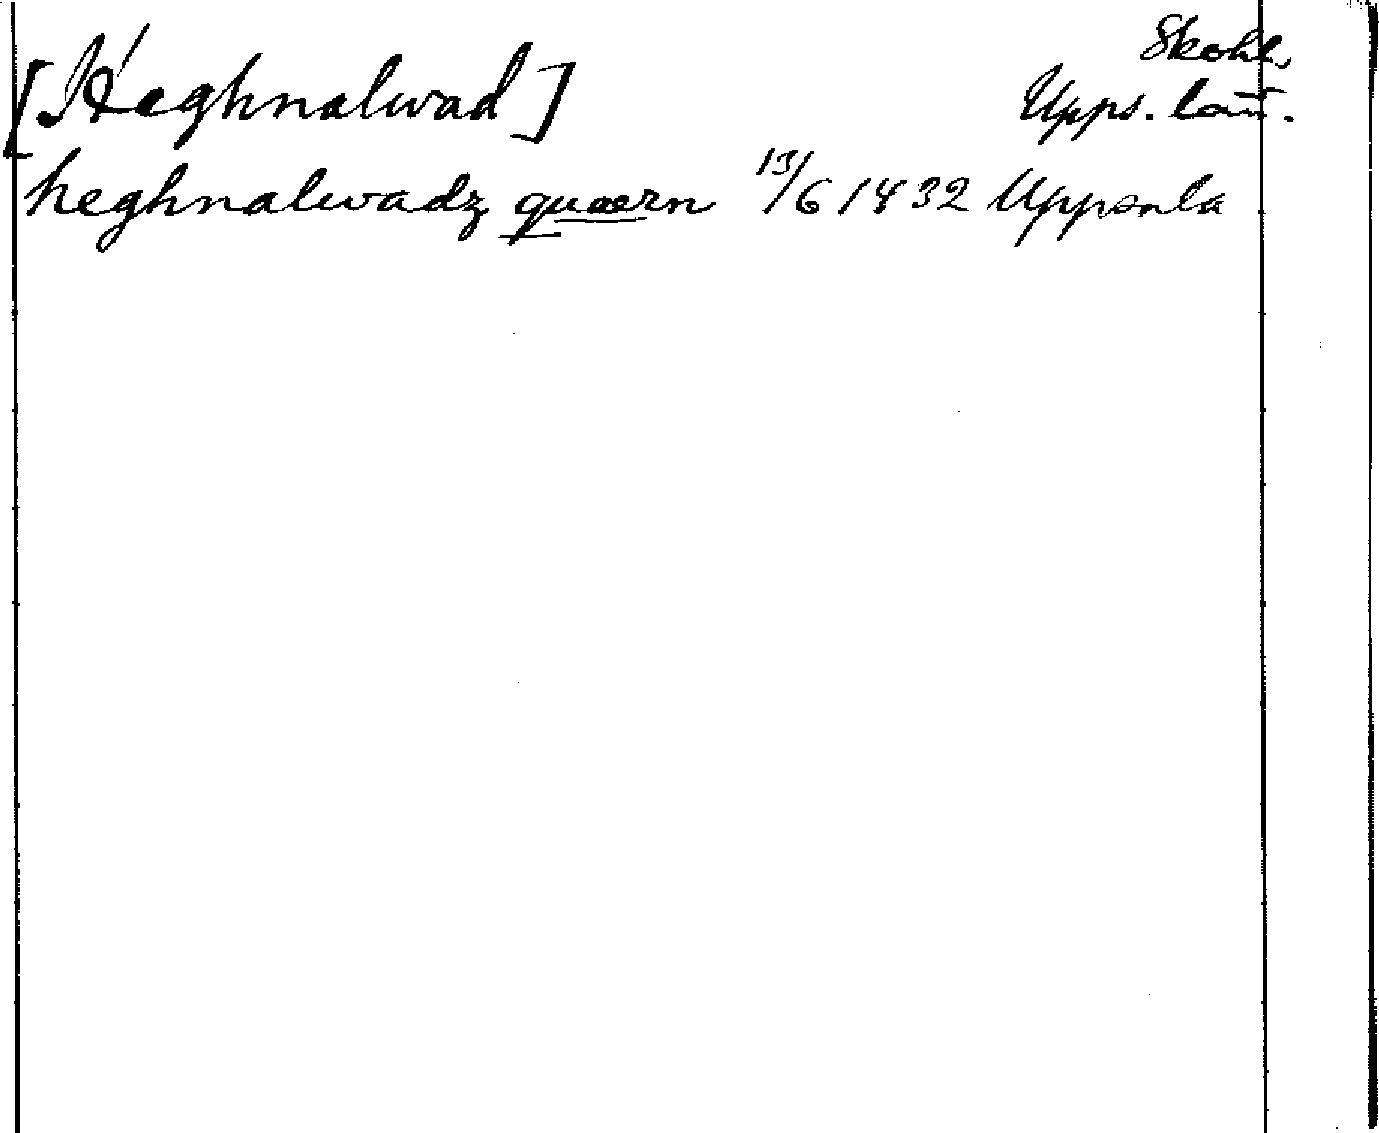 Skohl.
[Heghnalwad]
Upps. län.
heghnalwadz quærn 13/6 1432 Uppsala